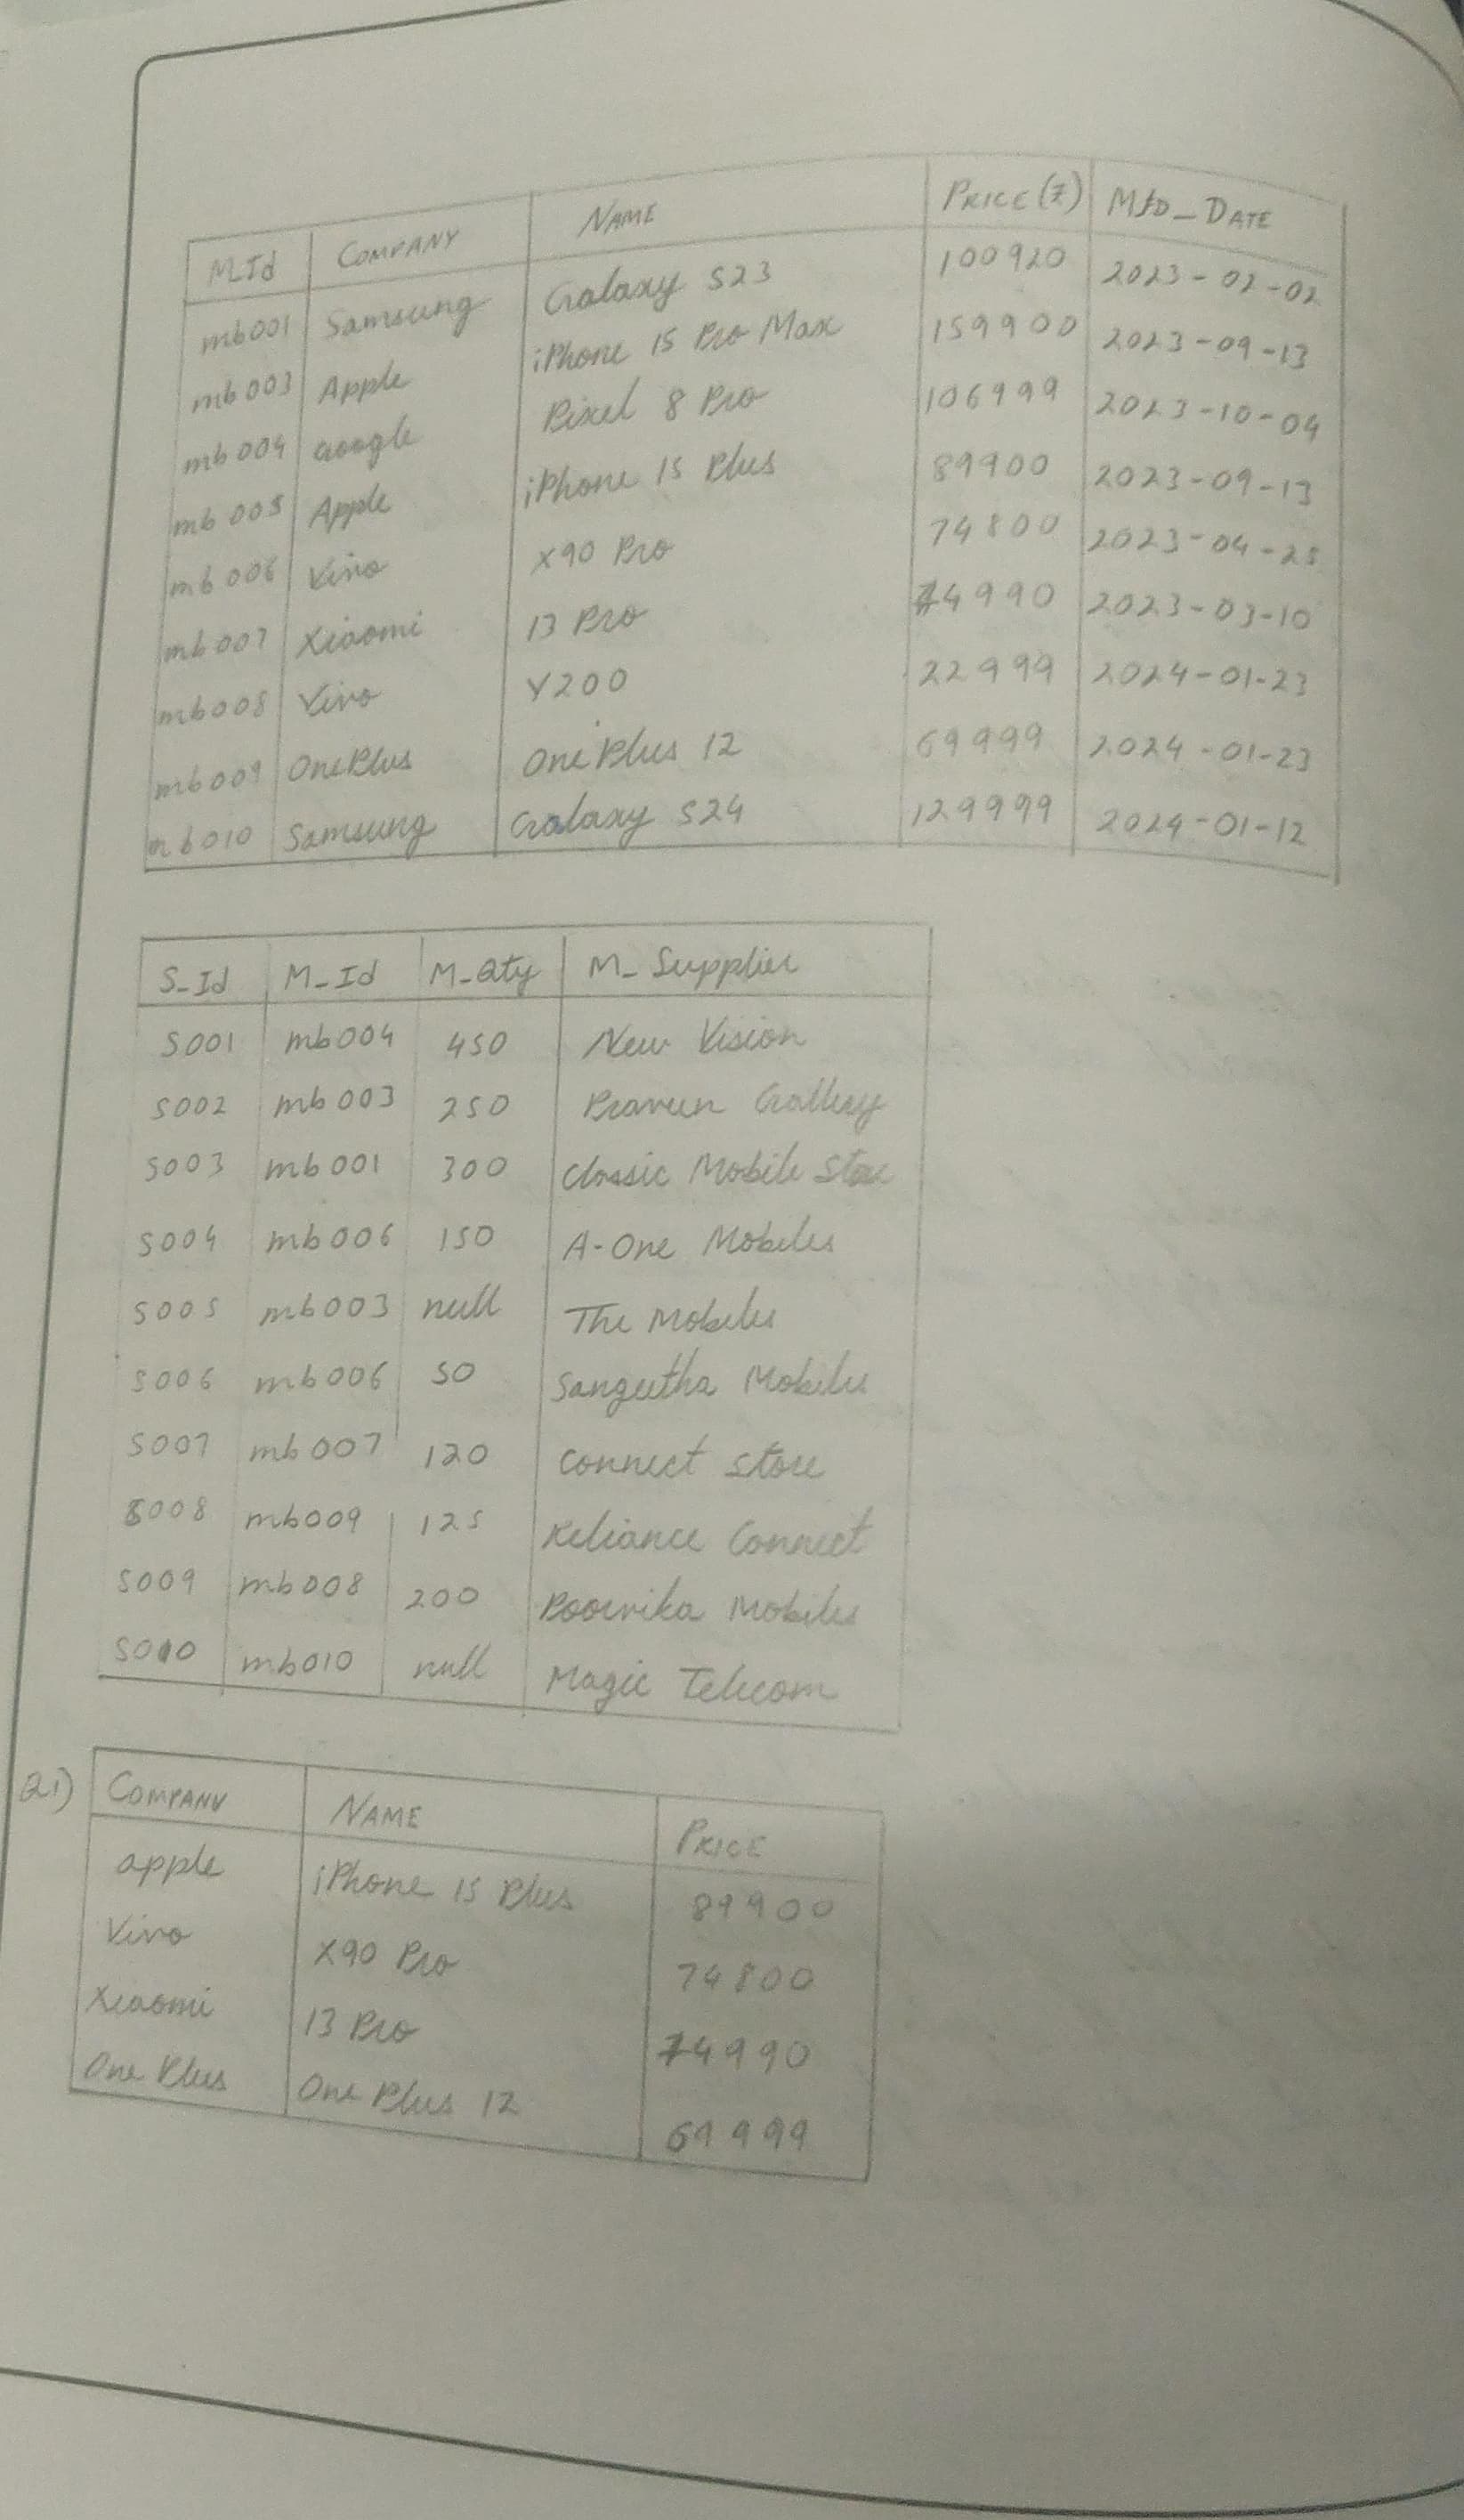 M_Id COMPANY NAME PRICE(₹) Mfd_DATE
mb001 Samsung Galaxy S23 100920 2023-02-02
mb003 Apple iPhone 15 Pro Max 159900 2023-09-13
mb004 Google Pixel 8 Pro 106999 2023-10-04
mb005 Apple iPhone 15 Plus 89900 2023-09-13
mb006 Vivo X90 Pro 74800 2023-04-25
mb007 Xiaomi 13 Pro 74990 2023-03-10
mb008 Vivo Y200 22999 2024-01-23
mb009 OnePlus OnePlus 12 69999 2024-01-23
mb010 Samsung Galaxy S24 129999 2024-01-12
S_Id M_Id M_Qty M_Supplier
S001 mb004 450 New Vision
S002 mb003 250 Praveen Gallery
S003 mb001 300 Classic Mobile Store
S004 mb006 150 A-One Mobiles
S005 mb003 null The Mobiles
S006 mb006 50 Sangeetha Mobiles
S007 mb007 120 Connect Store
S008 mb009 125 Reliance Connect
S009 mb008 200 Poorvika Mobiles
S010 mb010 null Magic Telecom
Q1) COMPANY NAME PRICE
apple iPhone 15 Plus 89900
Vivo X90 Pro 74800
Xiaomi 13 Pro 74990
One Plus One Plus 12 69999